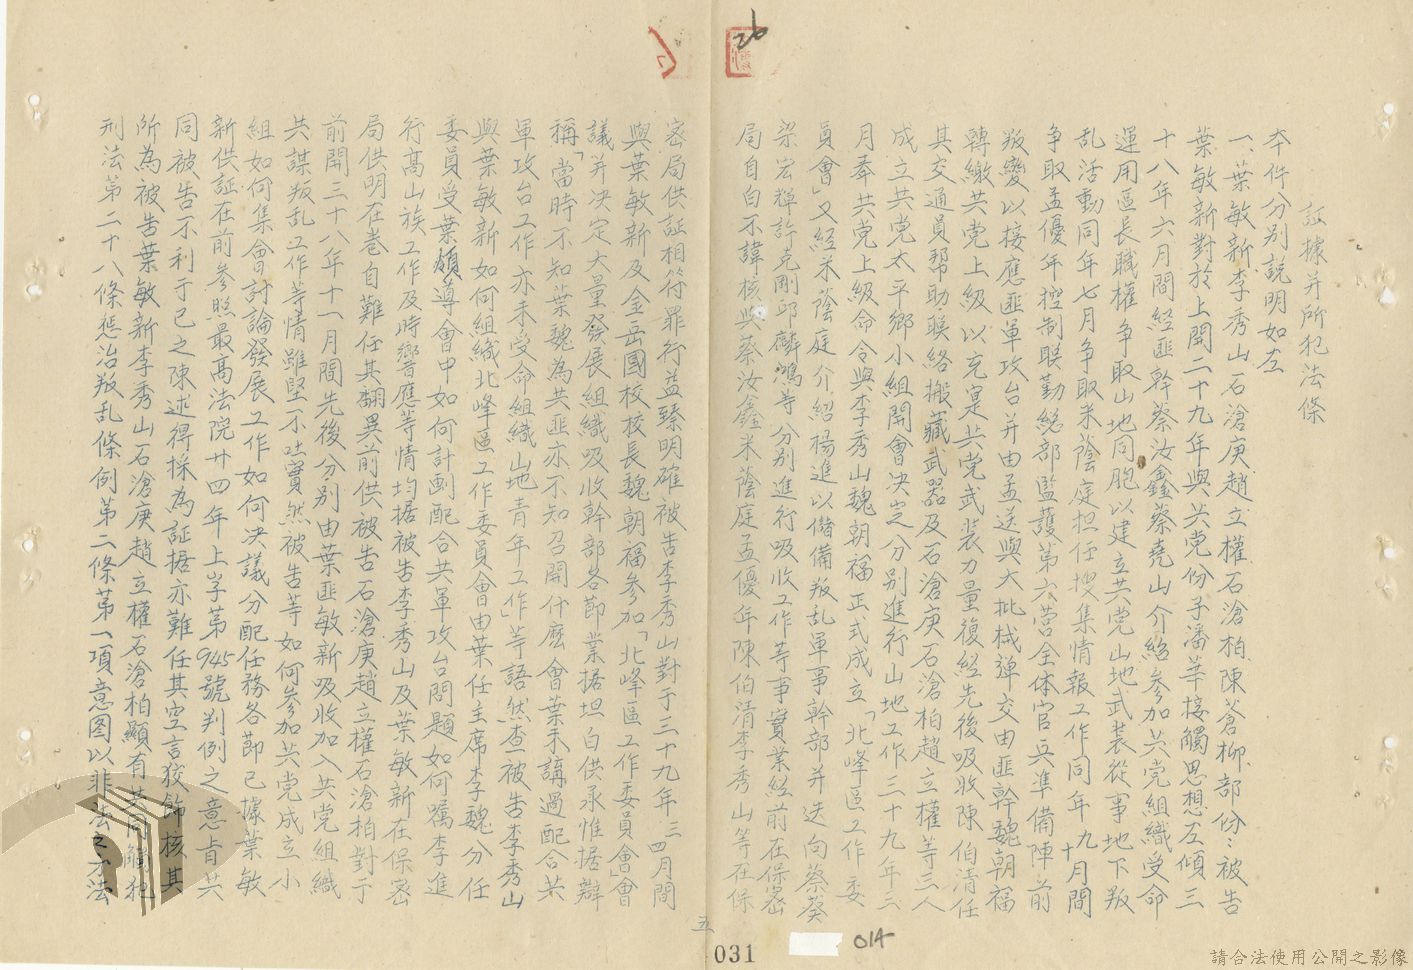 26
証據并所犯法條
本件分別説明如左
一、葉敏新李秀山石滄庚趙立權石滄柏陳蒼柳部份：被告
葉敏新對於上開二十九年與共党份子潘華接觸思想左傾三
十八年六月間經匪幹蔡汝鑫蔡堯山介紹參加共党組織受命
運用區長職權争取山地同胞以建立共党山地武装從事地下叛
乱活動同年七月争取米蔭庭担任搜集情報工作同年九十月間
争取孟優年控制联勤総部監護第六营全体官兵準備陣前
叛變以接應匪軍攻台并由孟送與大批械弹交由匪幹魏朝福
轉繳共党上級以充寔共党武装力量復經先後吸收陳伯清任
其交通員帮助联络搬藏武器及石滄庚石滄柏趙立權等三人
成立共党太平鄉小組開會决定分别進行山地工作三十九年三
月奉共党上級命令與李秀山魏朝福正式成立「北峰區工作委
員會」又經米蔭庭介紹楊進以儲備叛乱軍事幹部并送向蔡葵
梁宏輝許克剛邱麟鴻等分别進行吸收工作等事實業經前在保密
局自白不諱核與蔡汝鑫米蔭庭孟優年陳伯清李秀山等在保
密局供証相符罪行益臻明確被告李秀山對于三十九年三四月間
與葉敏新及金岳國校校長魏朝福参加「北峰區工作委員會」會
議并决定大量發展組織吸收幹部各節業据坦白供承惟据辯
稱「當時不知葉魏為共匪亦不知召開什麽會葉未講過配合共
軍攻台工作亦未受命組織山地青年工作」等語然查被告李秀山
與葉敏新如何組織北峰區工作委員會由葉任主席李魏分任
委員受葉領導會中如何計劃配合共軍攻台問題如何嘱李進
行高山族工作及時響應等情均据被告李秀山及葉敏新在保密
局供明在卷自難任其翻異前供被告石滄庚趙立權石滄柏對于
前開三十八年十一月間先後分别由葉匪敏新吸收加入共党組織
共謀叛乱工作等情雖堅不吐實然被告等如何参加共党成立小
組如何集會討論發展工作如何决議分配任務各節已據葉敏
新供証在前参照最高法院廿四年上字第945號判例之意旨共
同被告不利于己之陳述得採為証据亦難任其空言狡飾核其
所為被告葉敏新李秀山石滄庚趙立權石滄柏顯有共同觸犯
刑法第二十八條懲治叛乱條例第二條第一項意图以非法之方法
五
031
014
請合法使用公開之影像